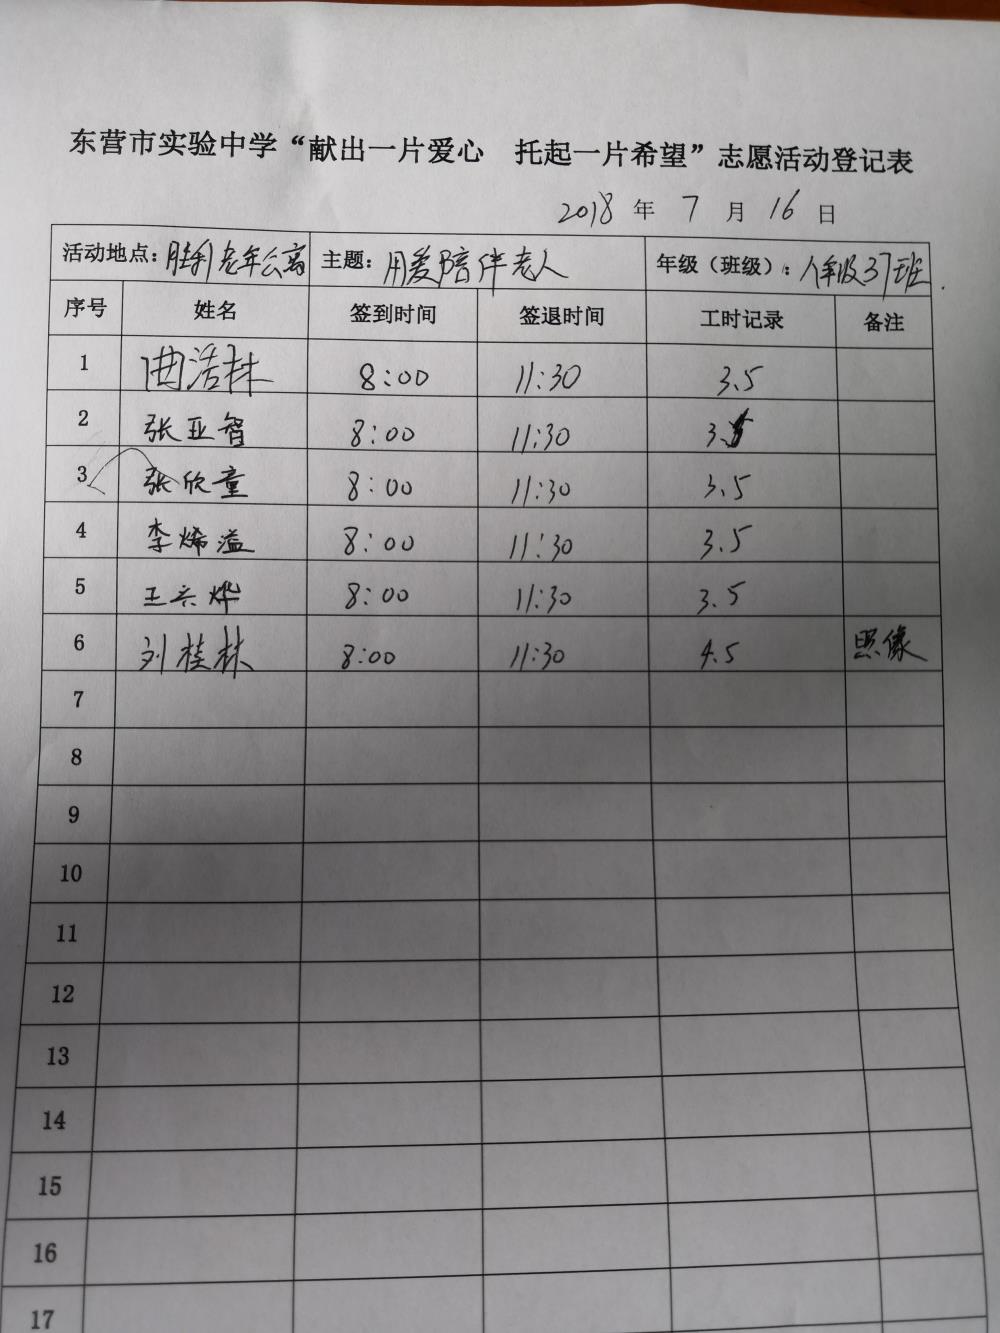 东营市实验中学“献出一片爱心 托起一片希望”志愿活动登记表
2018 年 7 月 16 日
活动地点：胜利老年公寓 主题：用爱陪伴老人 年级（班级）：八年级37班
序号 姓名 签到时间 签退时间 工时记录 备注
1 曲浩林 8:00 11:30 3.5
2 张亚智 8:00 11:30 3.5
3 张欣童 8:00 11:30 3.5
4 李烯溢 8:00 11:30 3.5
5 王 烨 8:00 11:30 3.5
6 刘桂林 8:00 11:30 4.5 照像
7
8
9
10
11
12
13
14
15
16
17